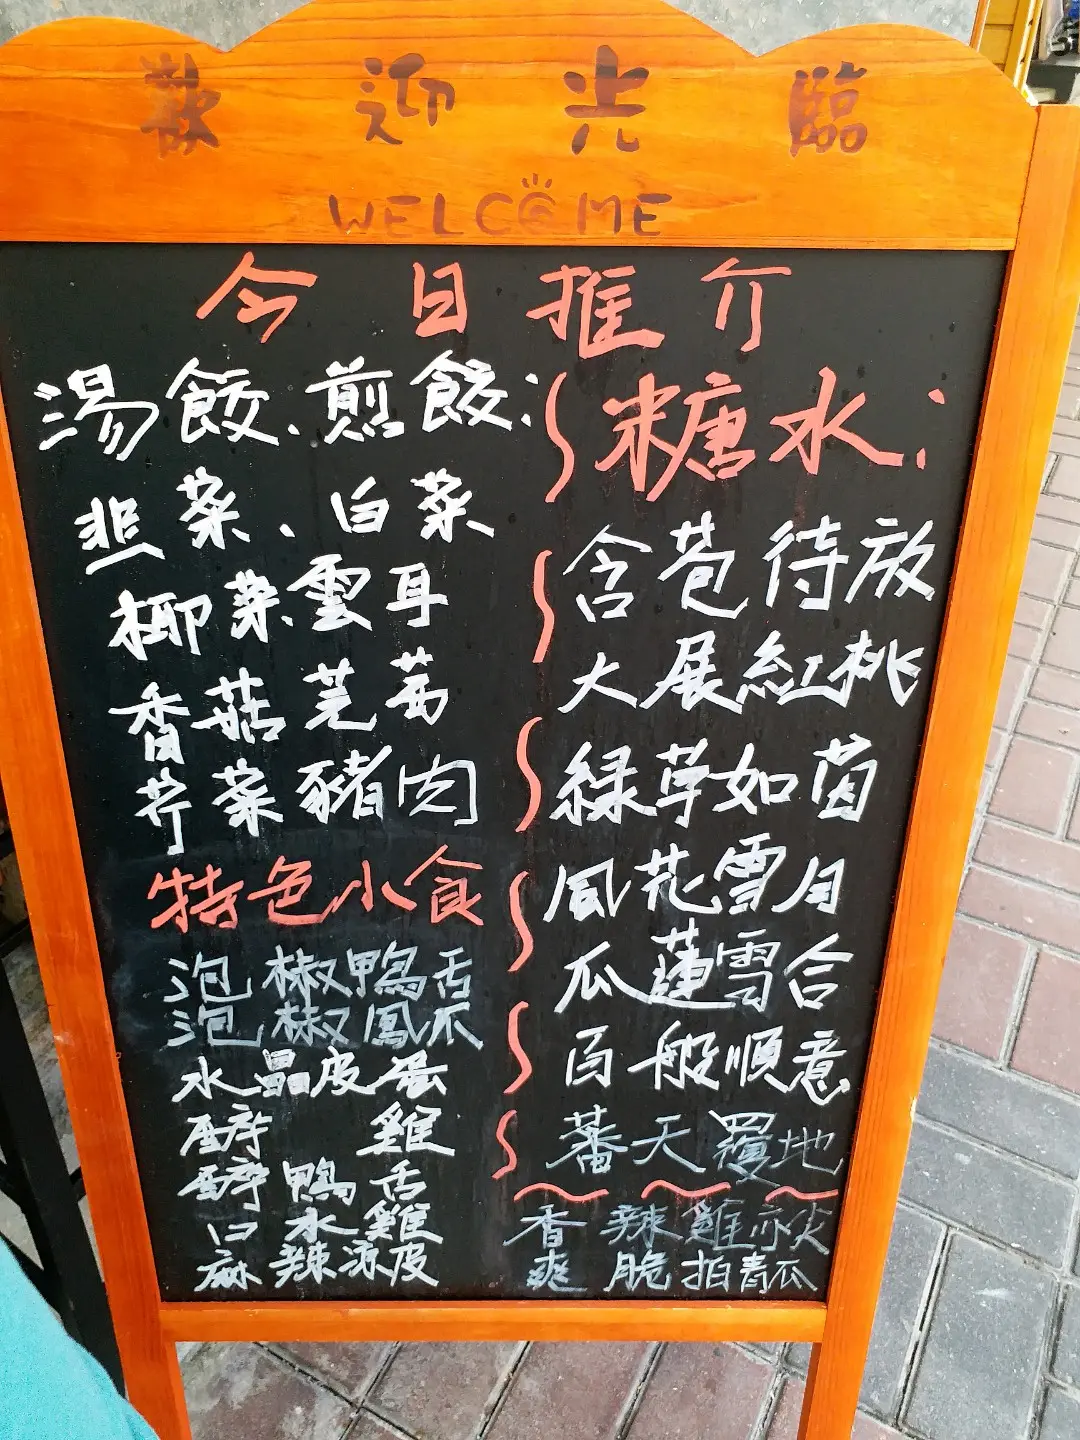 歡迎光臨
WELCOME
今日推介
湯餃、煎餃:
韮菜、白菜
椰菜雲耳
香菇芫茜
芥菜豬肉
特色小食
泡椒鴨舌
泡椒鳳爪
水晶皮蛋
醉雞
醉鴨舌
口水雞
麻辣涼皮
糖水:
含苞待放
大展紅桃
綠草如茵
風花雪月
瓜蓮雪合
百般順意
蕃天覆地
香辣雞亦尖
爽脆拍青瓜